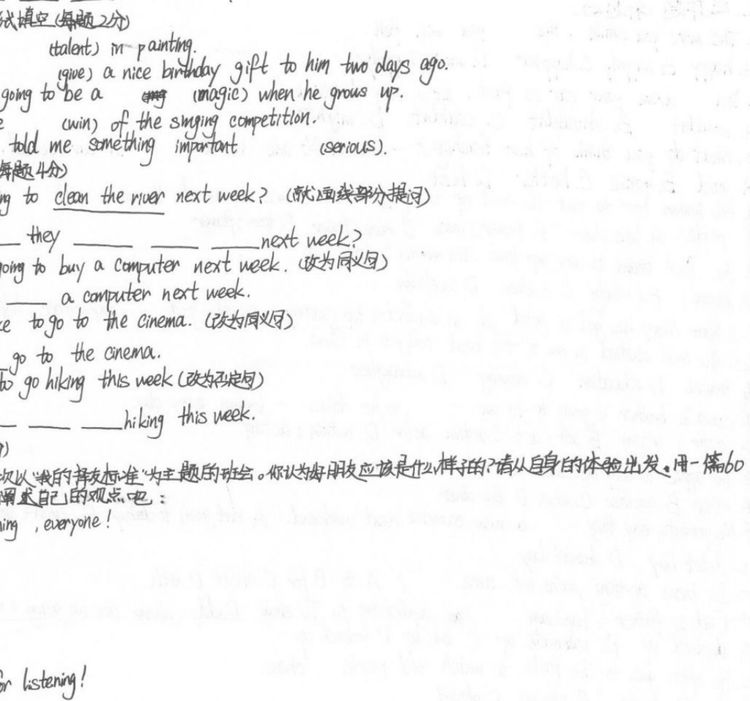 式填空(每题2分)
(talent) in painting.
(give) a nice birthday gift to him two days ago.
going to be a (magic) when he grows up.
(win) of the singing competition.
told me something important (serious).
每题4分)
ng to clean the river next week? (就画线部分提问)
___ they ___ ___ ___ next week?
oing to buy a computer next week. (改为同义句)
___ a computer next week.
ke to go to the cinema. (改为同义句)
go to the cinema.
to go hiking this week (改为否定句)
___ ___ ___ hiking this week.
次以"我的择友标准"为主题的班会。你认为好朋友应该是什么样子的?请从自身的体验出发,用一篇60
阐述自己的观点吧:
ning, everyone!
or listening!